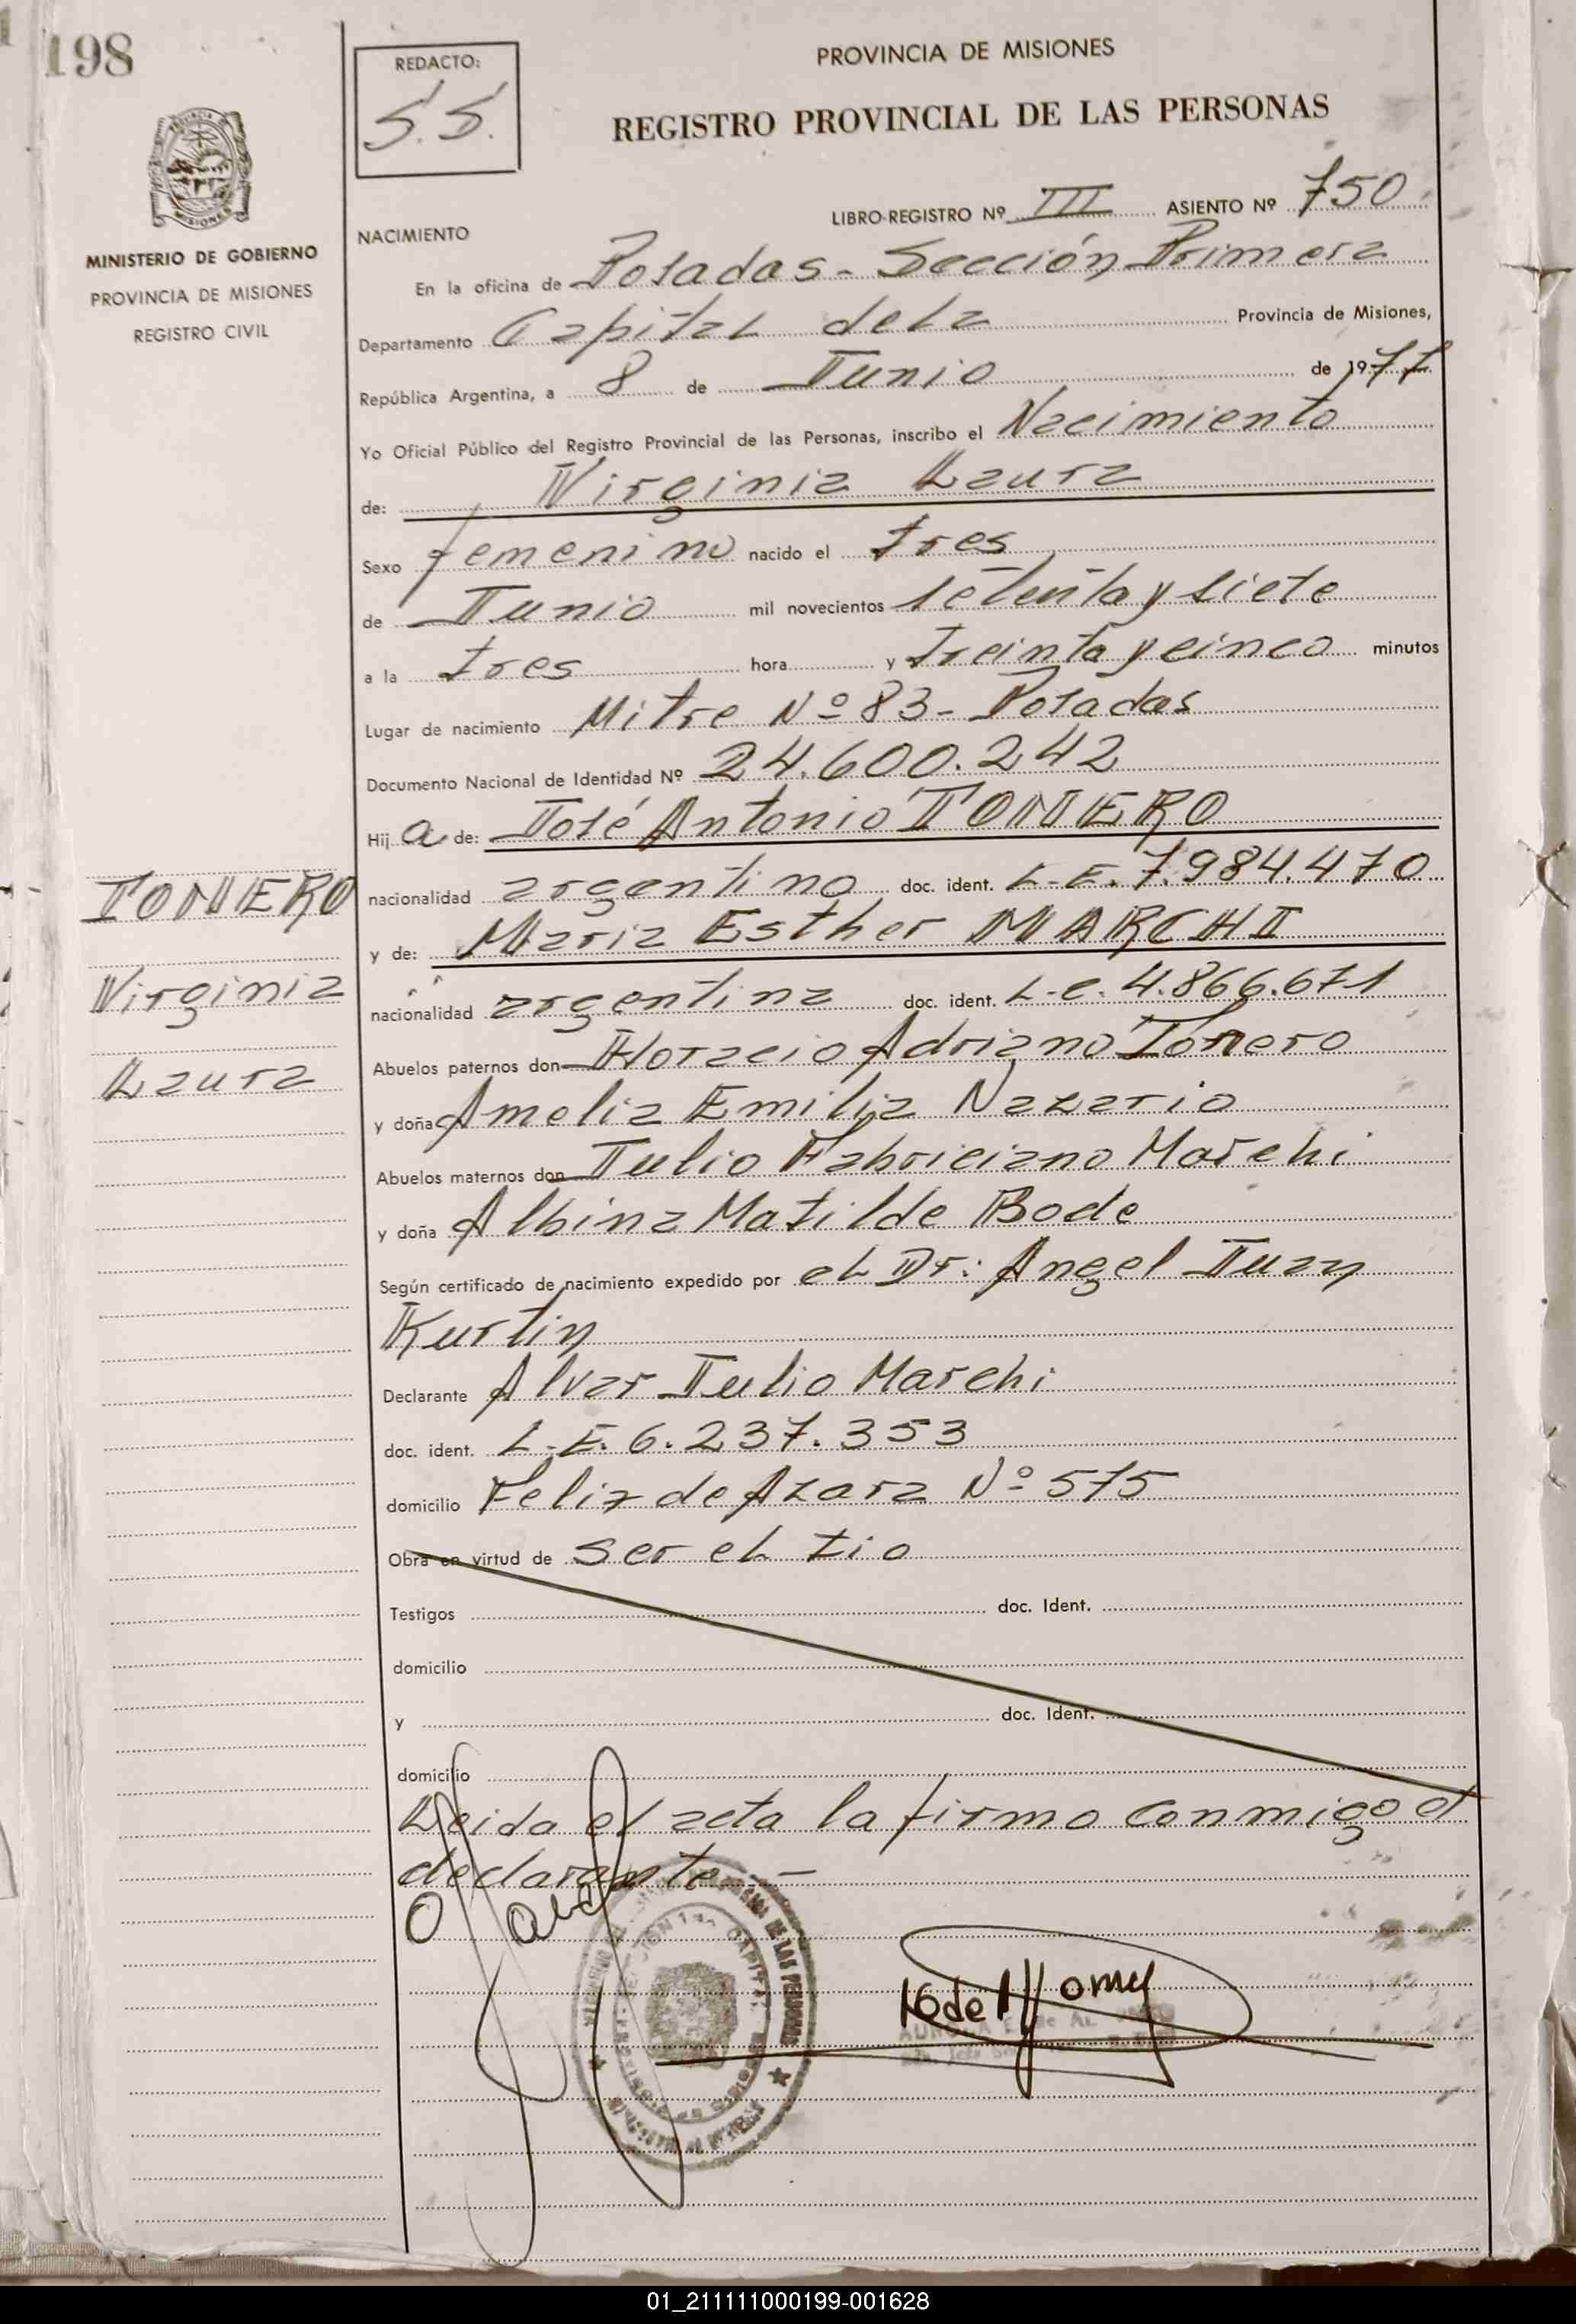 198
REDACTO:
S.S.
PROVINCIA DE MISIONES
REGISTRO PROVINCIAL DE LAS PERSONAS
MISIONES
MINISTERIO DE GOBIERNO
PROVINCIA DE MISIONES
REGISTRO CIVIL
LIBRO-REGISTRO Nº III ASIENTO Nº 750
NACIMIENTO
En la oficina de Posadas - Sección Primera
Departamento Capital de la Provincia de Misiones,
República Argentina, a 8 de Junio de 1977
Yo Oficial Público del Registro Provincial de las Personas, inscribo el Nacimiento
de: Virginia Laura
Sexo femenino nacido el tres
de Junio mil novecientos setenta y siete
a la tres hora y treinta y cinco minutos
Lugar de nacimiento Mitre Nº 83 - Posadas
Documento Nacional de Identidad Nº 24.600.242
Hija de: José Antonio TONERO
nacionalidad argentino doc. ident. L.E. 7.984.470
y de: Maria Esther MARCHI
nacionalidad argentina doc. ident. L.C. 4.866.671
Abuelos paternos don Horacio Adriano Tonero
y doña Amelia Emilia Nazario
Abuelos maternos don Julio Fabriciano Marchi
y doña Albina Matilde Bode
Según certificado de nacimiento expedido por el Dr: Angel Juan
Kurtin
Declarante Alvar Julio Marchi
doc. ident. L.E. 6.237.353
domicilio Felix de Azara Nº 575
Obra en virtud de ser el tio
Testigos doc. Ident.
domicilio
y doc. Ident.
domicilio
Leida el acta la firmo conmigo el
declarante. -
TONERO
Virginia
Laura
01_211111000199-001628